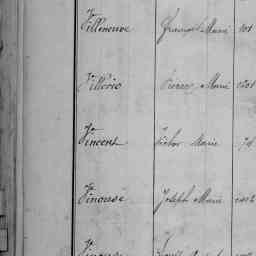 Villeneuve François Marie 101
Villerio Pierre Marie
Vincent Victor Marie
Vinouse Joseph Marie
Vinouse